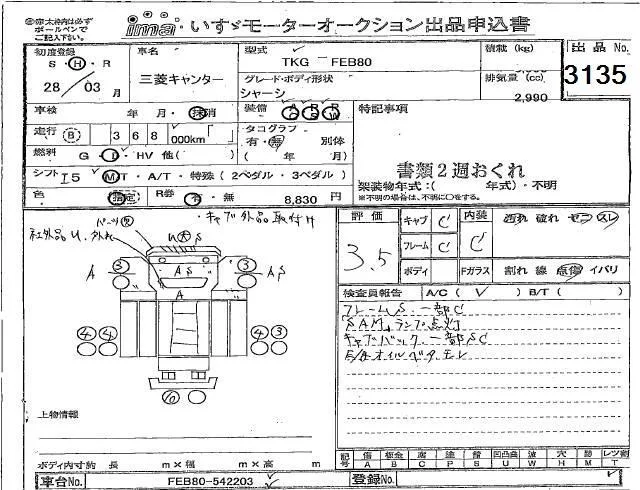 ima いすゞモーターオークション出品申込書
㊟太枠内は必ず
ボールペンで
ご記入下さい。
初度登録 車名 型式 TKG － FEB80 積載 (kg) 出品 No.
S・H・R 三菱キャンター グレード・ボディ形状 排気量 (cc) 3135
28 / 03 月 シャーシ 2,990
車検 年 月・抹消 装備 特記事項
走行 B 368 000km タコグラフ
有・無 別体
燃料 G・D・HV 他( ) ( 年 月) 書類2週おくれ
シフト I5 MT・A/T・特殊 (2ペダル・3ペダル) 架装物年式:( 年式)・不明
※不明の場合は、不明に○をする。
色 指定 R券 有・無 8,830 円
・キャブ外品取付け
社外品 U. 外れ
U大S
A 3 AS 3 AS
A
4 4 4 3
評価 3.5 キャブ C 内装 C 汚れ 破れ コゲ スレ
フレーム C
ボディ Fガラス 割れ 線 点傷 イバリ
検査員報告 A/C ( ✓ ) B/T ( )
フレームS 一部C
SAMランプ点灯
キャブバック一部SC
上物情報
記号 傷 A 板金 B 腐 C 塗 P 錆 S 凹凸曲 U 波 W 穴 H 跡 M レンズ割 T
ボディ内寸約 長 m×幅 m×高 m
車台No. FEB80-542203 登録No.